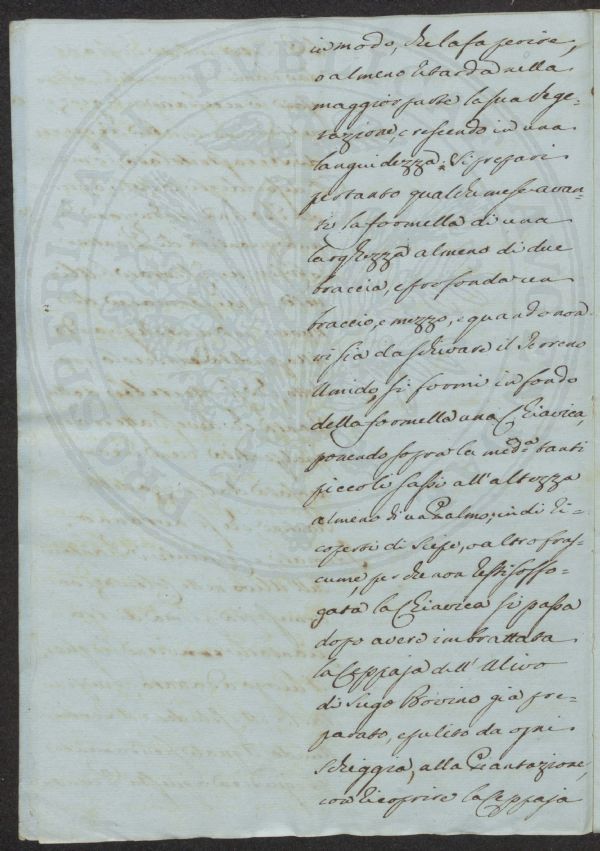 in modo, che la fa perire,
o almeno ritarda nella
maggior parte la sua vege=
tazione, crescendo in una
languidezza. Si prepari
pertanto qualche mese avan=
ti la formella di una
larghezza almeno di due
braccia, e profonda un
braccio, e mezzo, e quando non
vi sia da schivare il terreno
umido, si formi in fondo
della formella una Chiavica,
ponendo sopra la med.ª tanti
piccoli sassi all'altezza
almeno di un Palmo, indi ri=
coperti di Siepe, o altro fras=
cume, perche non resti soffo=
gata la Chiavica si passa
dopo avere imbrattata
la Ceppaja dell'Ulivo
di Sugo Bovino già pre=
parato, e pulito da ogni
Scheggia, alla Piantazione,
con ricoprire la Ceppaja
PROSPERITA PUBLICA